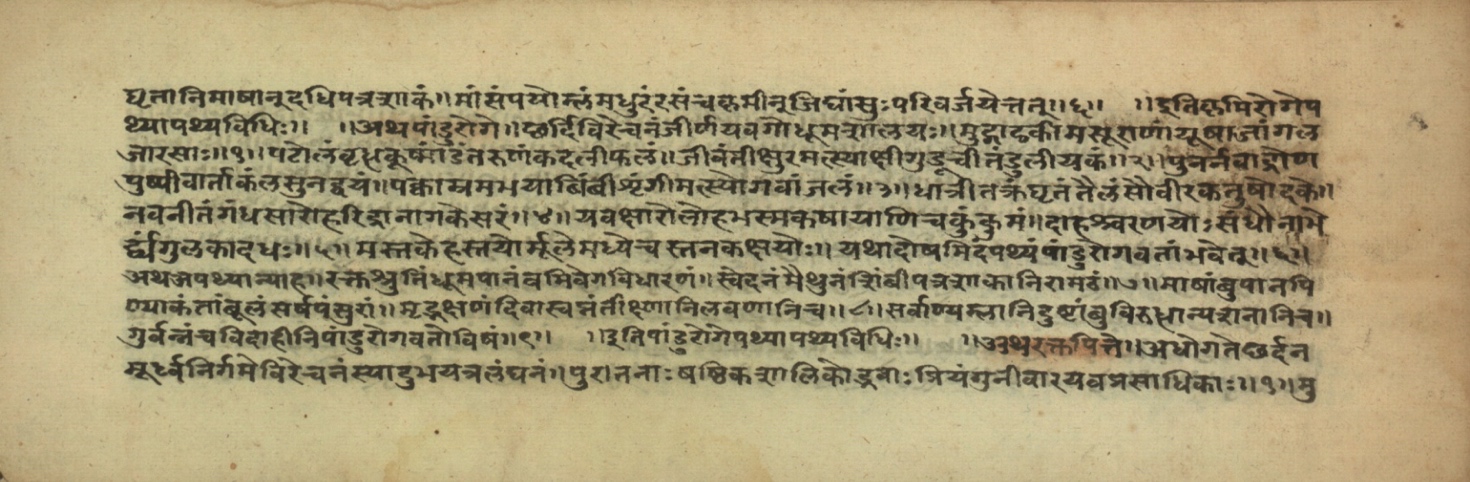 घृतानिमाषान्दधिपत्रशाकं॥मांसंपयोम्लंमधुरंरसंचकृमीन्जिघांसुःपरिवर्जयेत्तत्॥६॥ ॥इतिकृमिरोगेप
थ्यापथ्यविधिः॥ ॥अथपांडुरोगे॥छर्दिविरेचनंजीर्णयवगोधूमशालयः॥मुद्गाढकीमसूराणांयूषाजांगल
जारसाः॥१॥पटोलंवृद्धकूष्मांडंतरुणंकदलीफलं॥जीवंतीक्षुरमत्स्याक्षीगुडूचीतंडुलीयकं॥२॥पुनर्नवाद्रोण
पुष्पीवार्ताकंलसुनद्वयं॥पक्वाम्रमभयाबिंबीशृंगीमत्स्योगवांजलं॥३॥धात्रीतक्रंघृतंतैलंसौवीरकतुषोदके॥
नवनीतंगंधसारोहरिद्रानागकेसरं॥४॥यवक्षारोलोहभस्मकषायाणिचकुंकुमं॥दाहश्चरणयोःसंधौनाभे
र्द्व्यंगुलकादधः॥५॥मस्तकेहस्तयोर्मूलेमध्येचस्तनकक्षयोः॥यथादोषमिदंपथ्यंपांडुरोगवतांभवेत्॥६॥
अथअपथ्यान्याह॥रक्तश्रुतिंधूमपानंवमिवेगविधारणं॥स्वेदनंमैथुनंशिंबीपत्रशाकानिरामठं॥७॥माषांबुपानपि
ण्याकंतांबूलंसर्षपंसुरां॥मृद्भक्षणंदिवास्वप्नंतीक्ष्णानिलवणानिच॥८॥सर्वाण्यम्लानिदुष्टांबुविरुद्धान्यशनानिच॥
गुर्वन्नंचविदाहीनिपांडुरोगवतोविषं॥९॥ ॥इतिपांडुरोगेपथ्यापथ्यविधिः॥ ॥अथरक्तपित्ते॥अधोगतेछर्दन
मूर्ध्वनिर्गमेविरेचनंस्यादुभयत्रलंघनं॥पुरातनाःषष्ठिकशालिकोद्रवाःप्रियंगुनीवारयवप्रसाधिकाः॥१॥मु